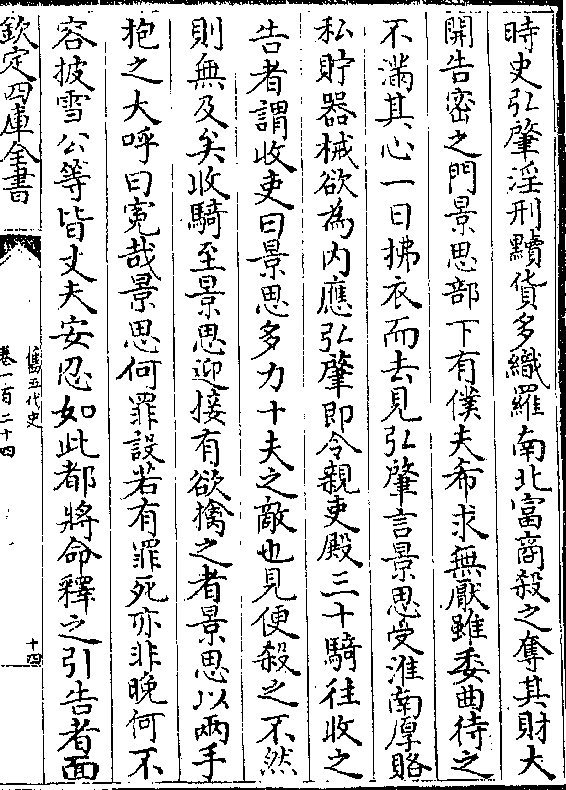 時史弘肇淫刑黷貨多織羅南北富商殺之奪其財大
開告密之門景思部下有僕夫希求無厭雖委曲待之
不滿其心一日拂衣而去見弘肇言景思受淮南厚賂
私貯器械欲為内應弘肇即令親吏殿三十騎往收之
告者謂收吏曰景思多力十夫之敵也見便殺之不然
則無及矣收騎至景思迎接有欲擒之者景思以兩手
抱之大呼曰寃哉景思何罪設若有罪死亦非晚何不
容披雪公等皆丈夫安忍如此都將命釋之引告者面
欽定四庫全書
舊五代史
卷一百二十四
十四